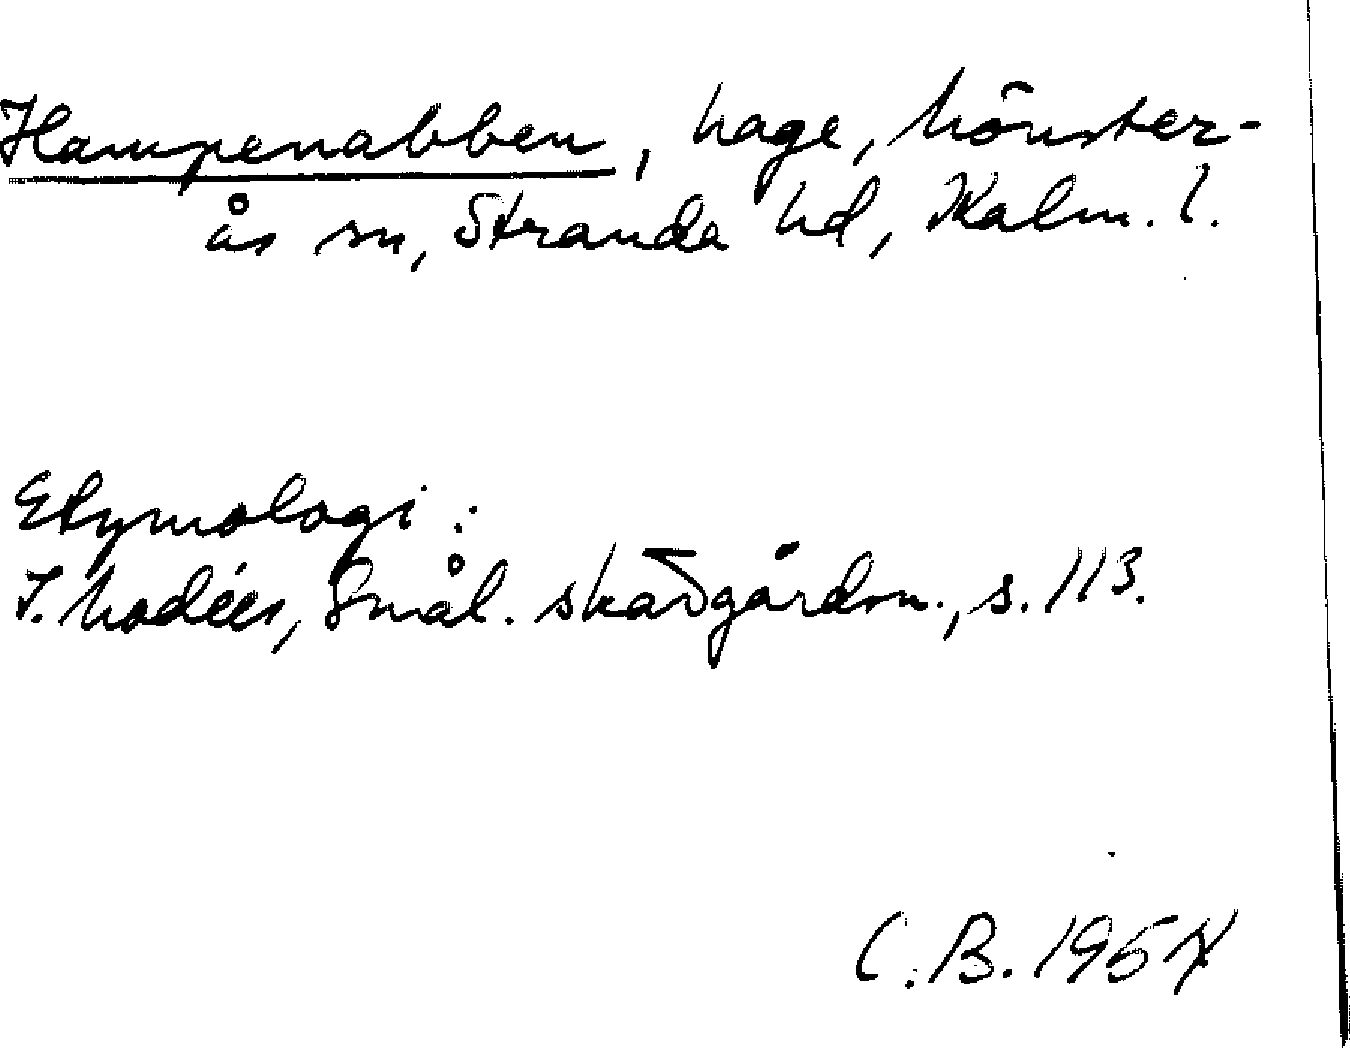 Hampenabben, hage, Mönster-
ås sn, Stranda hd, Kalm. l.
Etymologi:
I. Modéer, Smål. skärgårdsn., s. 113.
C. B. 1957